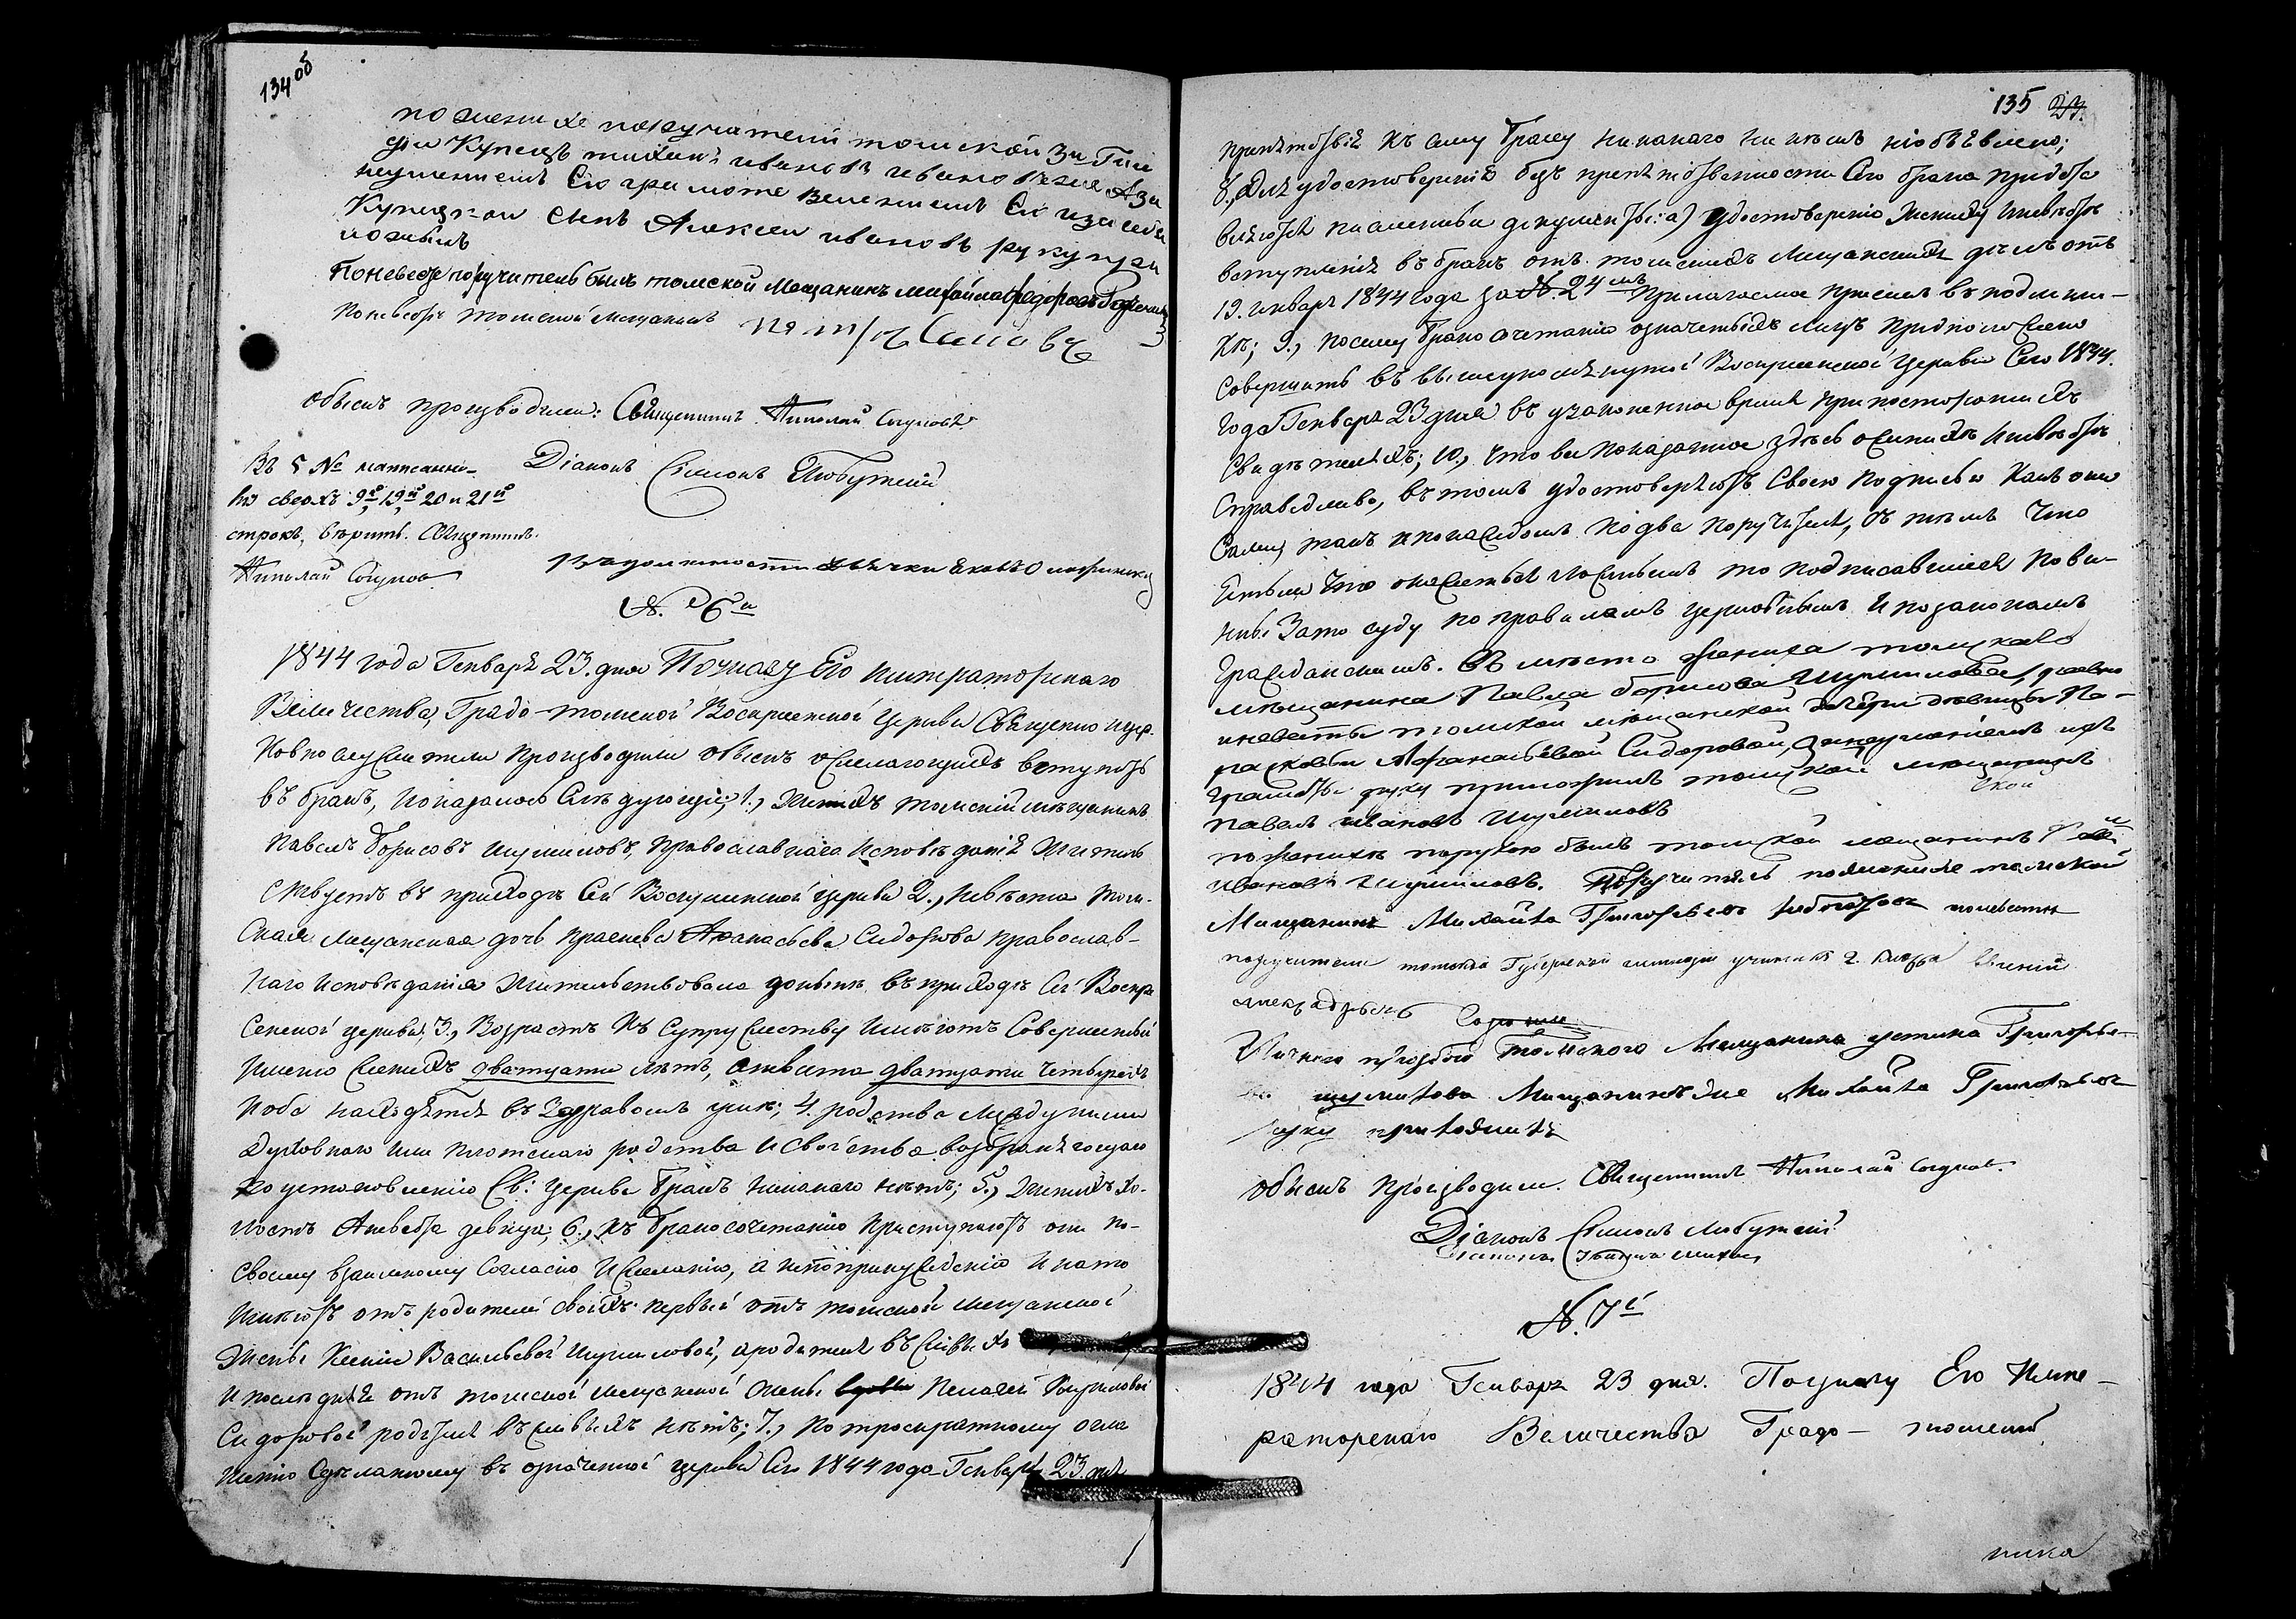 134 об
по женихе поручателей томской 3й Гил
дии Купецъ иванъ ивановъ
неумениемъ Его грамоте велениемъ Его
Купецкой Сынъ Алексей ивановъ руку при
ложилъ
Поневесте поручителъ былъ томской Мещанинъ михайла федоровъ
Поневестѣ томской мещанинъ
Обыскъ производили: Священникъ Николай Согуновъ
Въ 5 № написанно-
му сверхъ 9й, 19й, 20 и 21й
строкъ, вѣрить. Священникъ
Николай Согуновъ
Діаконъ Симеонъ Любутскій
N. 6й
1844 года Генваря 23. дня По указу Его Императорскаго
Величества, Градо-томской Воскресенской Церкви Священно и цер-
ковнослужители производили обыскъ о желающихъ вступить
въ бракъ, и оказалось слѣдующее, 1., Женихъ томскій мѣщанинъ
Павелъ Борисовъ Шумиловъ, православнаго исповѣданія жител-
ствуетъ въ приходѣ сей Воскресенской церкви 2., Невѣста Том-
ская мещанская дочь Прасковья Афанасьева Сидорова православ-
наго исповѣданія жительствовала донынѣ въ приходѣ сей Воскре
сенской церкви; 3., Возрастъ къ супружеству имѣютъ совершенный
именно женихъ дватцати лѣтъ, а невѣста дватцати четырехъ
и оба находятся въ здравомъ умѣ; 4. родства между ними
духовнаго или плотскаго родства и свойства возбраняющаго
по установленію Св: церкви бракъ никакаго нѣтъ; 5., Женихъ хо-
лостъ а невѣста девица; 6., къ бракосочетанію приступаютъ они по
своему взаимному согласію и желанію, а не по принужденію и на то
имѣютъ отъ родителей своихъ: первый отъ томской мещанской
жены Ксении Васильевой Шумиловой, а родителя въ живыхъ
и послѣдняя отъ томской мещанской жены Пелагеи Кирилловой
Сидоровой родителя въ живыхъ нѣтъ; 7., По троекратному огла
шению сдѣланному въ означенной церкви сего 1844 года Генваря 23. дня
135 23.
препятствія къ сему браку никакаго ни кѣмъ необъявлено;
8., Для удостоверенія безпрепятственности сего брака предста
вляются письменны документы: а) удостоверенія жениху и невѣстѣ
вступленія въ бракъ отъ томскихъ Мещанскихъ дѣлъ отъ
19. генваря 1844 года за N. 24мъ прилагаемое присемъ въ подлинни-
кѣ; 9., по сему бракосочетаніе означенныхъ лицъ предположено
совершить въ вышеупомянутой Воскресенской церкви сего 1844.
года Генваря 23 дня въ узаконенное время при постороннихъ
свидѣтеляхъ; 10., что все показанное здѣсь о женихѣ и невѣстѣ
справедливо, въ томъ удостоверяютъ своею подписью какъ они
сами, такъ и по каждомъ по два поручителя, съ тѣмъ что
естьли что окажется ложнымъ то подписавшіеся пови-
нны за то суду по правиламъ церковнымъ и по законамъ
Гражданскимъ. В мѣсто жениха томскаго
мещанина Павла борисова Шумилова, равно
и невѣсты томской мещанской дочери девицы Па-
расковьи Афанасьевой Сидоровой, за неумѣниемъ ихъ
грамоты руку приложилъ томской мещанинъ
павелъ ивановъ Шумиловъ
по женихѣ порукою былъ томской мещанинъ
ивановъ Шумиловъ. Поручителъ по женихе томской
Мещанинъ Михайла Григорьевъ поневестѣ
поручители томской Губернской гимназіи ученикъ 2. класса
александровъ
Личною прозбою Томского Мещанина устина Григорье-
ва шумилова Мещанинъ Михайла Григорьевъ
руку приложилъ
Обыскъ производили. Священникъ Николай Согуновъ.
Діаконъ Симеонъ Любутскій
N. 7й
1844 года Генваря 23 дня. По указу Его Импе-
раторскаго Величества Градо-томской